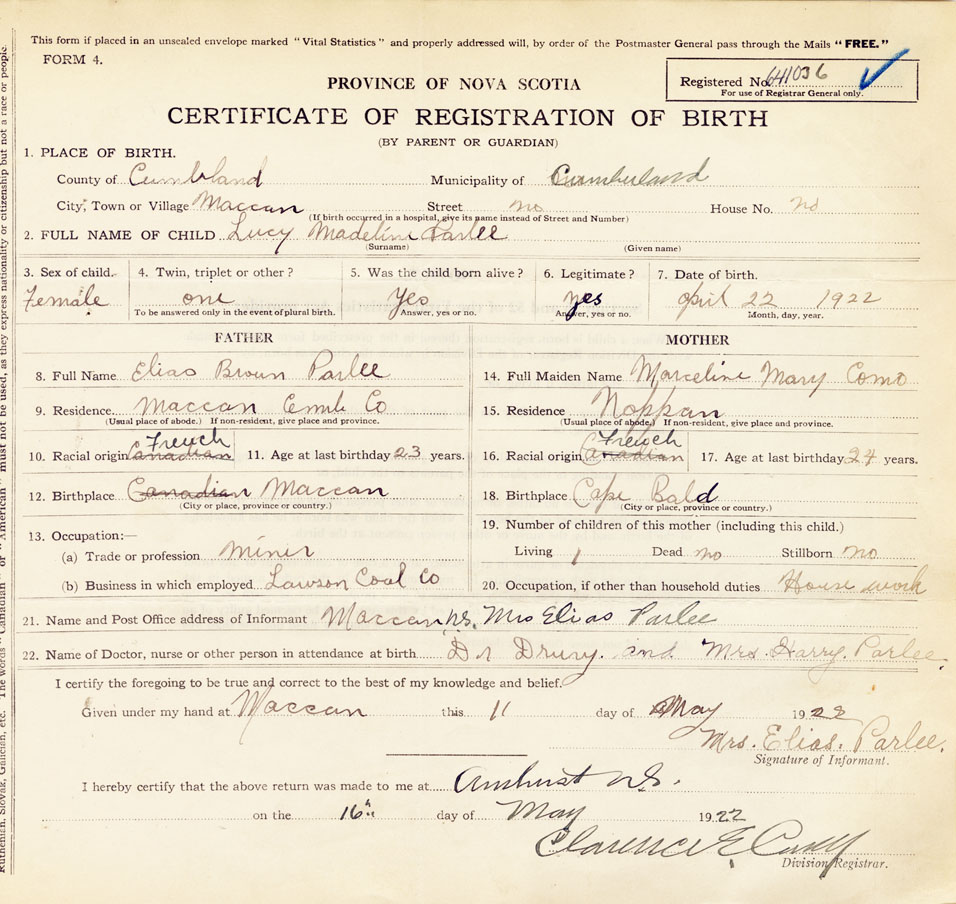 This form if placed in an unsealed envelope marked "Vital Statistics" and properly addressed will, by order of the Postmaster General pass through the Mails "FREE."
FORM 4.
Registered No. 641036
For use of Registrar General only.
PROVINCE OF NOVA SCOTIA
CERTIFICATE OF REGISTRATION OF BIRTH
(BY PARENT OR GUARDIAN)
1. PLACE OF BIRTH.
County of Cumbland Municipality of Cumberland
City, Town or Village Maccan Street no House No. no
(If birth occurred in a hospital, give its name instead of Street and Number)
2. FULL NAME OF CHILD Lucy Madeline Parlee
(Surname) (Given name)
3. Sex of child. 4. Twin, triplet or other? 5. Was the child born alive? 6. Legitimate? 7. Date of birth.
Female one Yes yes april 22 1922
To be answered only in the event of plural birth. Answer, yes or no. Answer, yes or no. Month, day, year.
FATHER MOTHER
8. Full Name Elias Brown Parlee 14. Full Maiden Name Marceline Mary Como
9. Residence Maccan Cumb Co 15. Residence Nappan
(Usual place of abode.) If non-resident, give place and province. (Usual place of abode.) If non-resident, give place and province.
French French
10. Racial origin Canadian 11. Age at last birthday 23 years. 16. Racial origin Canadian 17. Age at last birthday 24 years.
12. Birthplace Canadian Maccan 18. Birthplace Cape Bald
(City or place, province or country.) (City or place, province or country.)
13. Occupation:— 19. Number of children of this mother (including this child.)
(a) Trade or profession Miner Living 1 Dead no Stillborn no
(b) Business in which employed Lawson Coal Co 20. Occupation, if other than household duties House work
21. Name and Post Office address of Informant Maccan N.S. Mrs Elias Parlee
22. Name of Doctor, nurse or other person in attendance at birth Dr Drury. and Mrs. Harry. Parlee.
I certify the foregoing to be true and correct to the best of my knowledge and belief.
Given under my hand at Maccan this 11 day of May 1922
Mrs. Elias. Parlee.
Signature of Informant.
I hereby certify that the above return was made to me at Amherst N.S.
on the 16th day of May 1922
Clarence E
Division Registrar.
Ruthenian, Slovak, Galician, etc. The words "Canadian" or "American" must not be used, as they express nationality or citizenship but not a race or people.